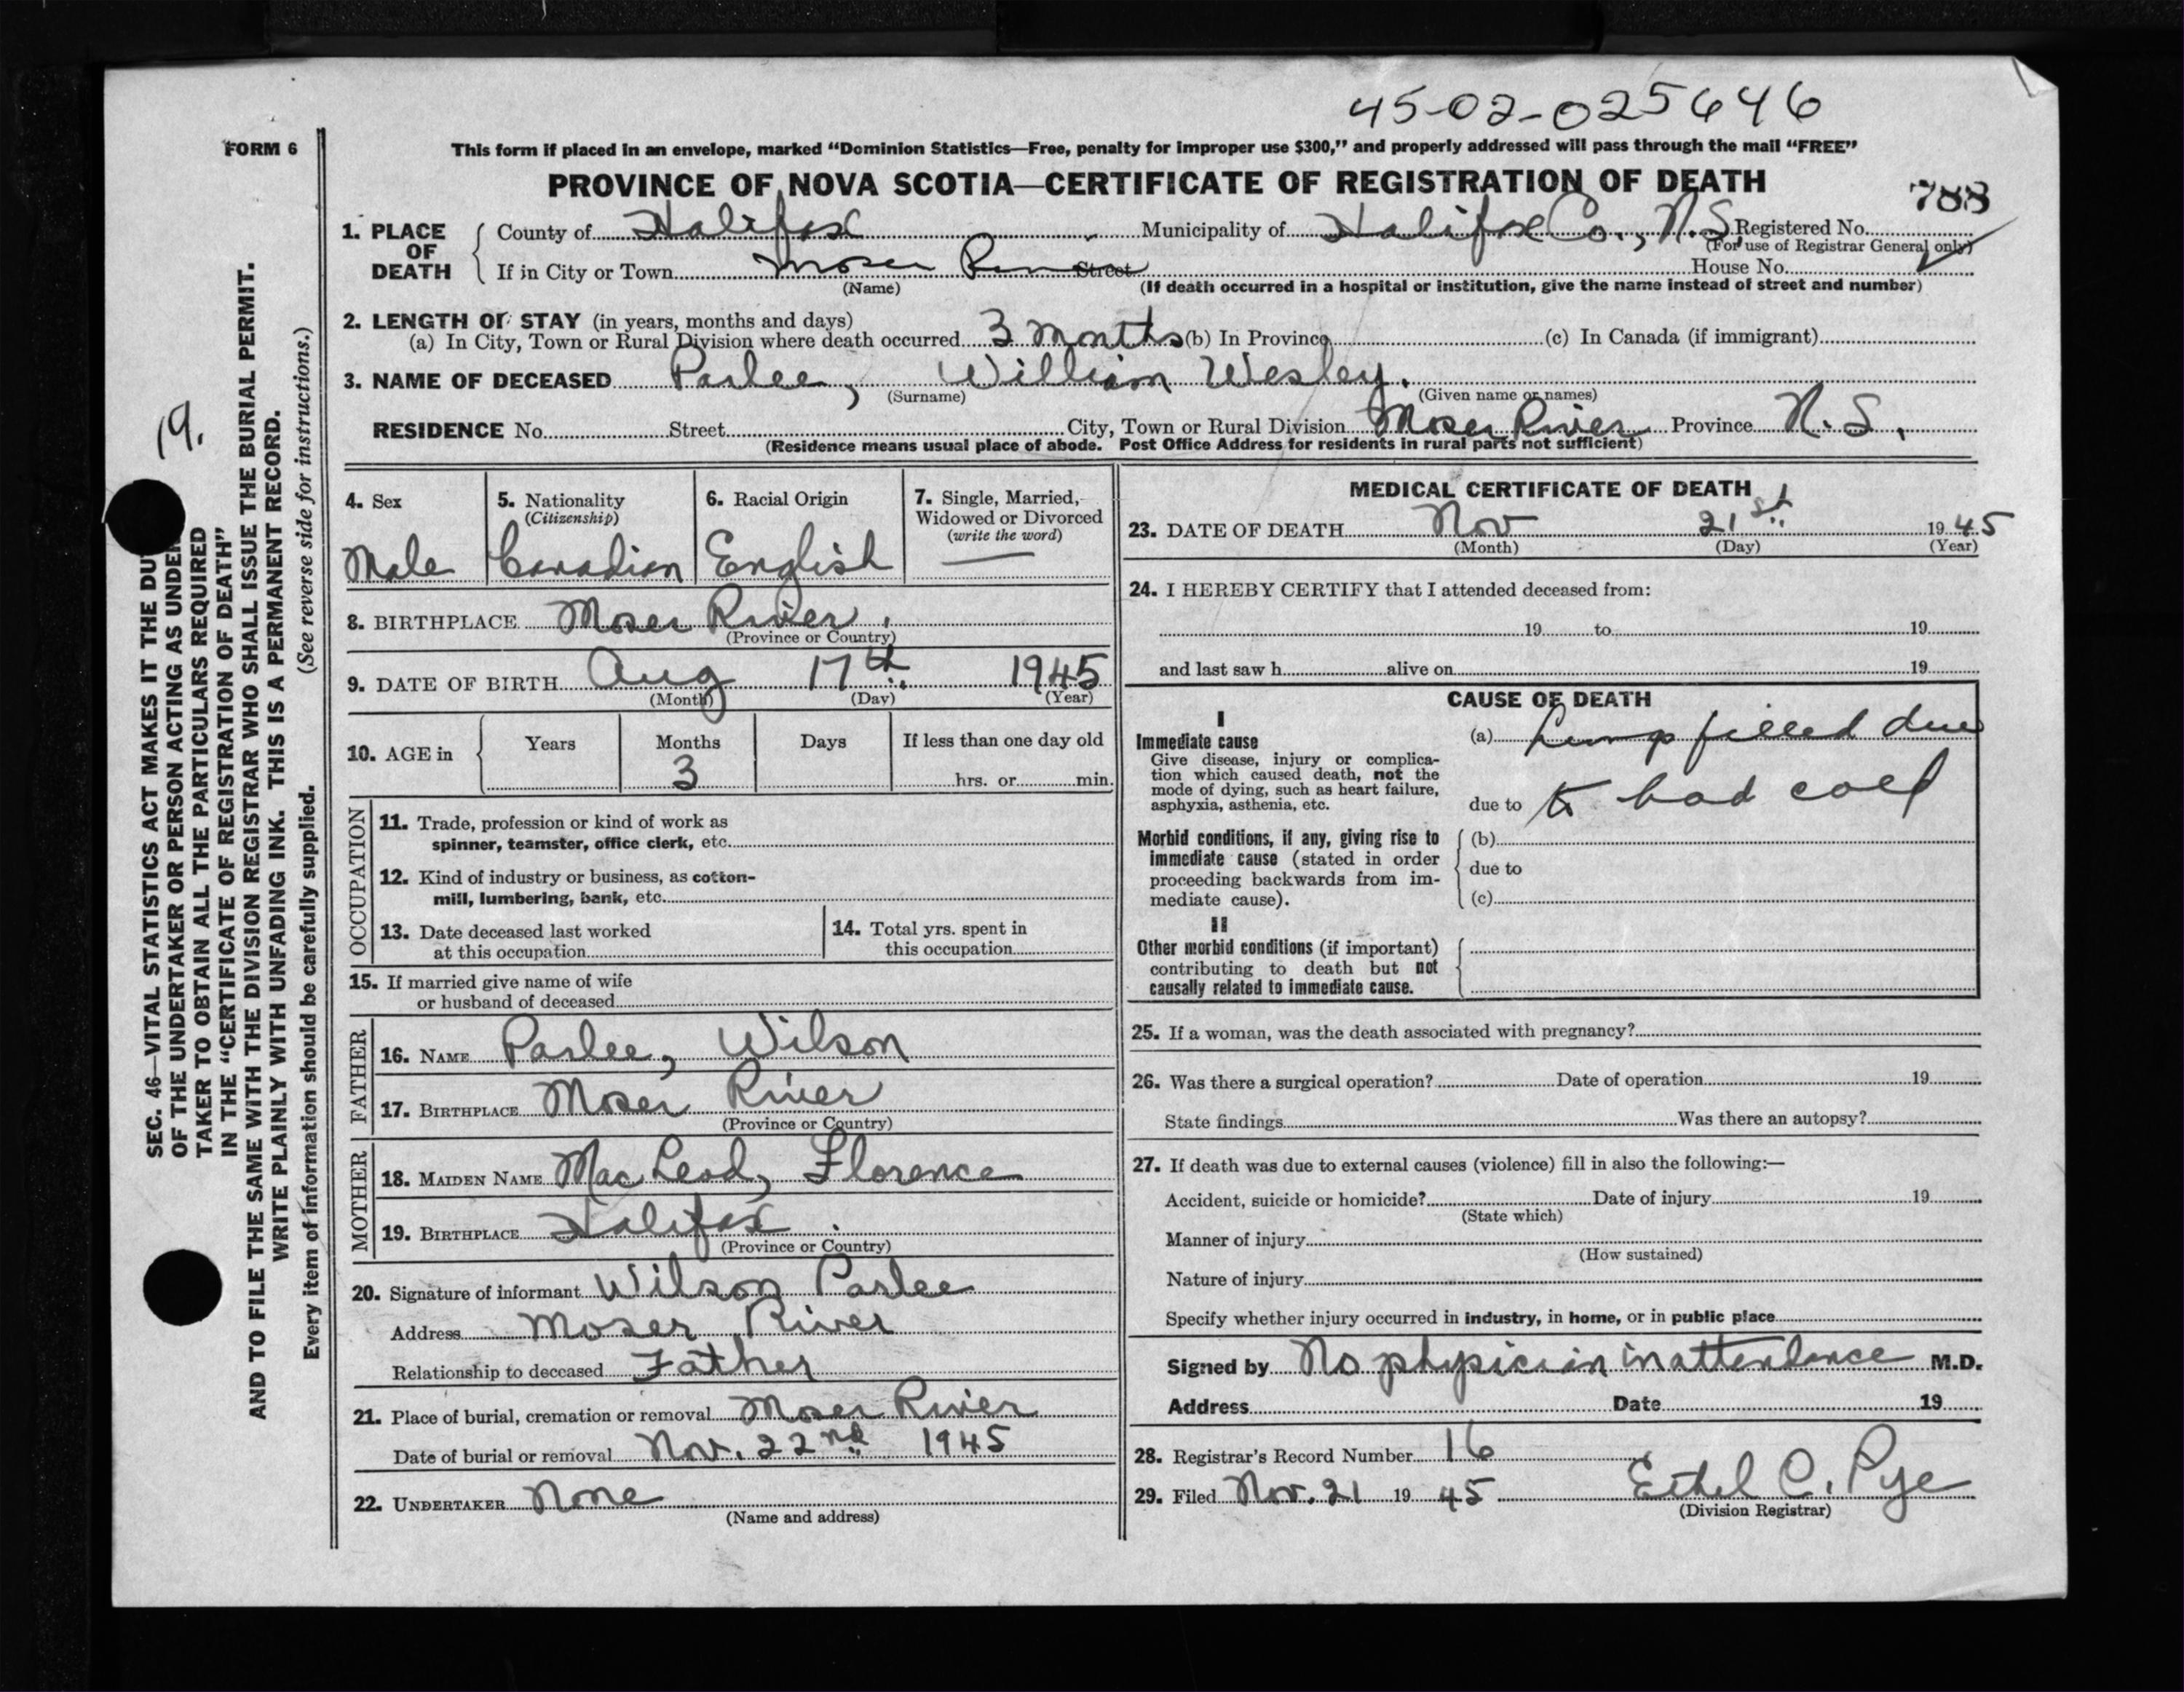 45-02-025646
FORM 6
This form if placed in an envelope, marked “Dominion Statistics—Free, penalty for improper use $300,” and properly addressed will pass through the mail “FREE”
PROVINCE OF NOVA SCOTIA—CERTIFICATE OF REGISTRATION OF DEATH
788
1. PLACE OF DEATH
County of Halifax Municipality of Halifax Co., N.S. Registered No.
(For use of Registrar General only)
If in City or Town Moser River Street House No.
(Name) (If death occurred in a hospital or institution, give the name instead of street and number)
2. LENGTH OF STAY (in years, months and days)
(a) In City, Town or Rural Division where death occurred 3 months (b) In Province (c) In Canada (if immigrant)
3. NAME OF DECEASED Paslee, William Wesley.
(Surname) (Given name or names)
RESIDENCE No. Street City, Town or Rural Division Moser River Province N.S.
(Residence means usual place of abode. Post Office Address for residents in rural parts not sufficient)
4. Sex
Male
5. Nationality
(Citizenship)
Canadian
6. Racial Origin
English
7. Single, Married, Widowed or Divorced
(write the word)
—
8. BIRTHPLACE Moser River.
(Province or Country)
9. DATE OF BIRTH Aug 17th 1945
(Month) (Day) (Year)
10. AGE in Years Months Days If less than one day old
3 hrs. or min.
OCCUPATION
11. Trade, profession or kind of work as
spinner, teamster, office clerk, etc.
12. Kind of industry or business, as cotton-
mill, lumbering, bank, etc.
13. Date deceased last worked
at this occupation
14. Total yrs. spent in
this occupation
15. If married give name of wife
or husband of deceased
FATHER
16. NAME Paslee, Wilson
17. BIRTHPLACE Moser River
(Province or Country)
MOTHER
18. MAIDEN NAME MacLeod, Florence
19. BIRTHPLACE Halifax
(Province or Country)
20. Signature of informant Wilson Paslee
Address Moser River
Relationship to deceased Father
21. Place of burial, cremation or removal Moser River
Date of burial or removal Nov. 22nd 1945
22. UNDERTAKER None
(Name and address)
MEDICAL CERTIFICATE OF DEATH
23. DATE OF DEATH Nov 21st 1945
(Month) (Day) (Year)
24. I HEREBY CERTIFY that I attended deceased from:
19 to 19
and last saw h alive on 19
CAUSE OF DEATH
I
Immediate cause
Give disease, injury or complica-
tion which caused death, not the
mode of dying, such as heart failure,
asphyxia, asthenia, etc.
(a) Lungs filled due
due to to bad cold
Morbid conditions, if any, giving rise to
immediate cause (stated in order
proceeding backwards from im-
mediate cause).
(b)
due to
(c)
II
Other morbid conditions (if important)
contributing to death but not
causally related to immediate cause.
25. If a woman, was the death associated with pregnancy?
26. Was there a surgical operation? Date of operation 19
State findings Was there an autopsy?
27. If death was due to external causes (violence) fill in also the following:—
Accident, suicide or homicide? Date of injury 19
(State which)
Manner of injury
(How sustained)
Nature of injury
Specify whether injury occurred in industry, in home, or in public place
Signed by No physician in attendance M.D.
Address Date 19
28. Registrar's Record Number 16
29. Filed Nov. 21 19 45 Ethel C. Pye
(Division Registrar)
19.
SEC. 46—VITAL STATISTICS ACT MAKES IT THE DU
OF THE UNDERTAKER OR PERSON ACTING AS UNDER
TAKER TO OBTAIN ALL THE PARTICULARS REQUIRED
IN THE “CERTIFICATE OF REGISTRATION OF DEATH”
AND TO FILE THE SAME WITH THE DIVISION REGISTRAR WHO SHALL ISSUE THE BURIAL PERMIT.
WRITE PLAINLY WITH UNFADING INK. THIS IS A PERMANENT RECORD.
Every item of information should be carefully supplied. (See reverse side for instructions.)